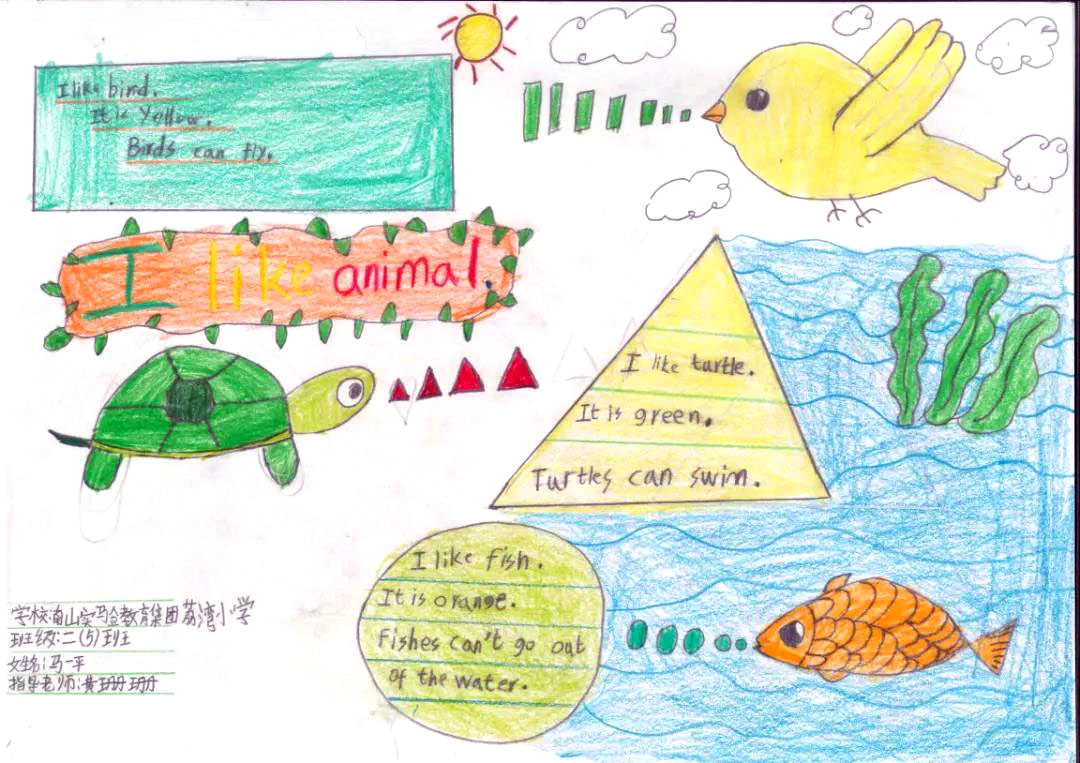 I like bird.
It is Yellow.
Birds can fly.
I like animal.
I like turtle.
It is green.
Turtles can swim.
I like fish.
It is orange.
Fishes can't go out
of the water.
学校:南山实验教育集团荔湾小学
班级:二(5)班
姓名:马一平
指导老师:黄珊珊